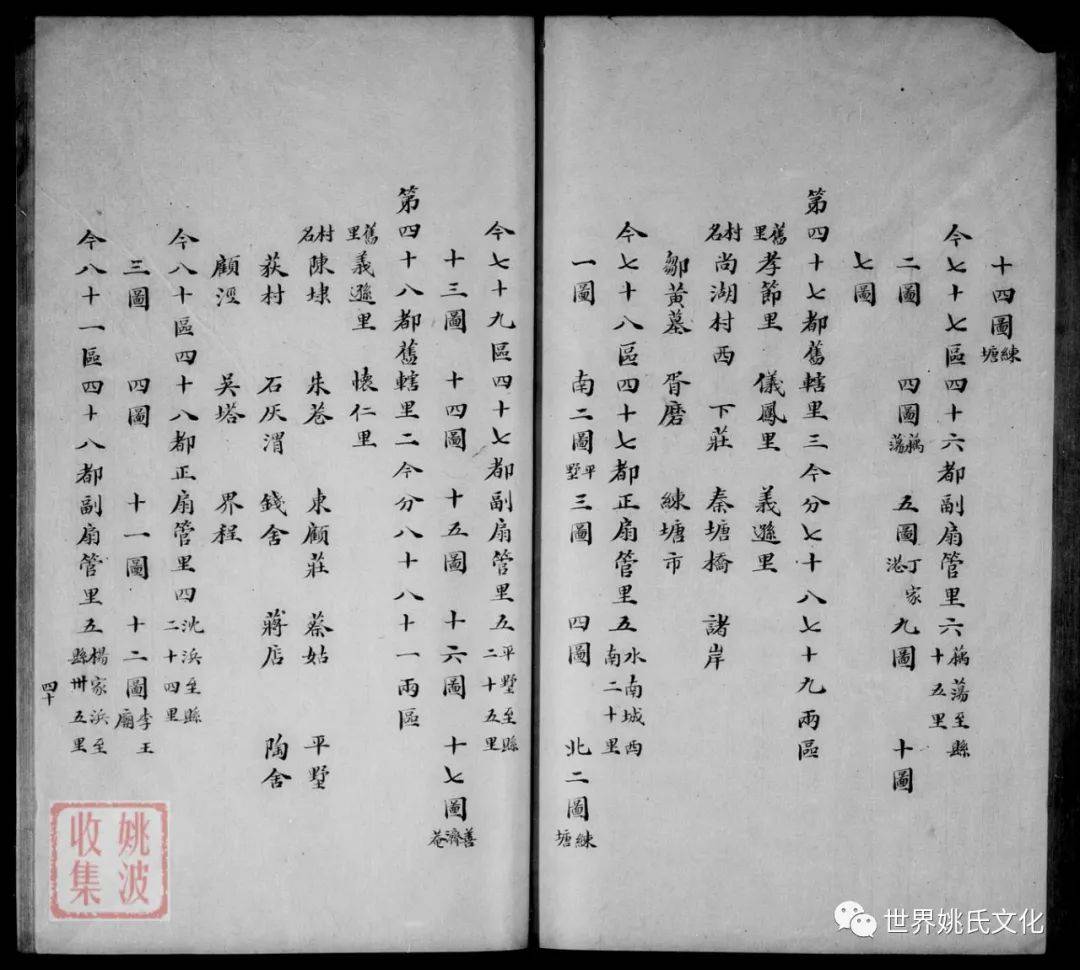 十四圖練塘
今七十七區四十六都副扇管里六蕅蕩至縣十五里
二圖 四圖蕅蕩 五圖丁家港 九圖 十圖
七圖
第四十七都舊轄里三今分七十八七十九兩區
舊里孝節里 儀鳳里 義遜里
村名尚湖村西 下莊 秦塘橋 諸岸
鄒黃墓 胥磨 練塘市
今七十八區四十七都正扇管里五水南城西南二十里
一圖 南二圖平墅 三圖 四圖 北二圖練塘
今七十九區四十七都副扇管里五平墅至縣二十五里
十三圖 十四圖 十五圖 十六圖 十七圖善濟菴
第四十八都舊轄里二今分八十八十一兩區
舊里義遜里 懷仁里
村名陳埭 朱巷 東顧莊 蔡姑 平墅
荻村 石灰渭 錢舍 蔣店 陶舍
顧涇 吳塔 界程
今八十區四十八都正扇管里四沈浜至縣二十四里
三圖 四圖 十一圖 十二圖李王廟
今八十一區四十八都副扇管里五楊家浜至縣卅五里
四十
姚波收集
世界姚氏文化